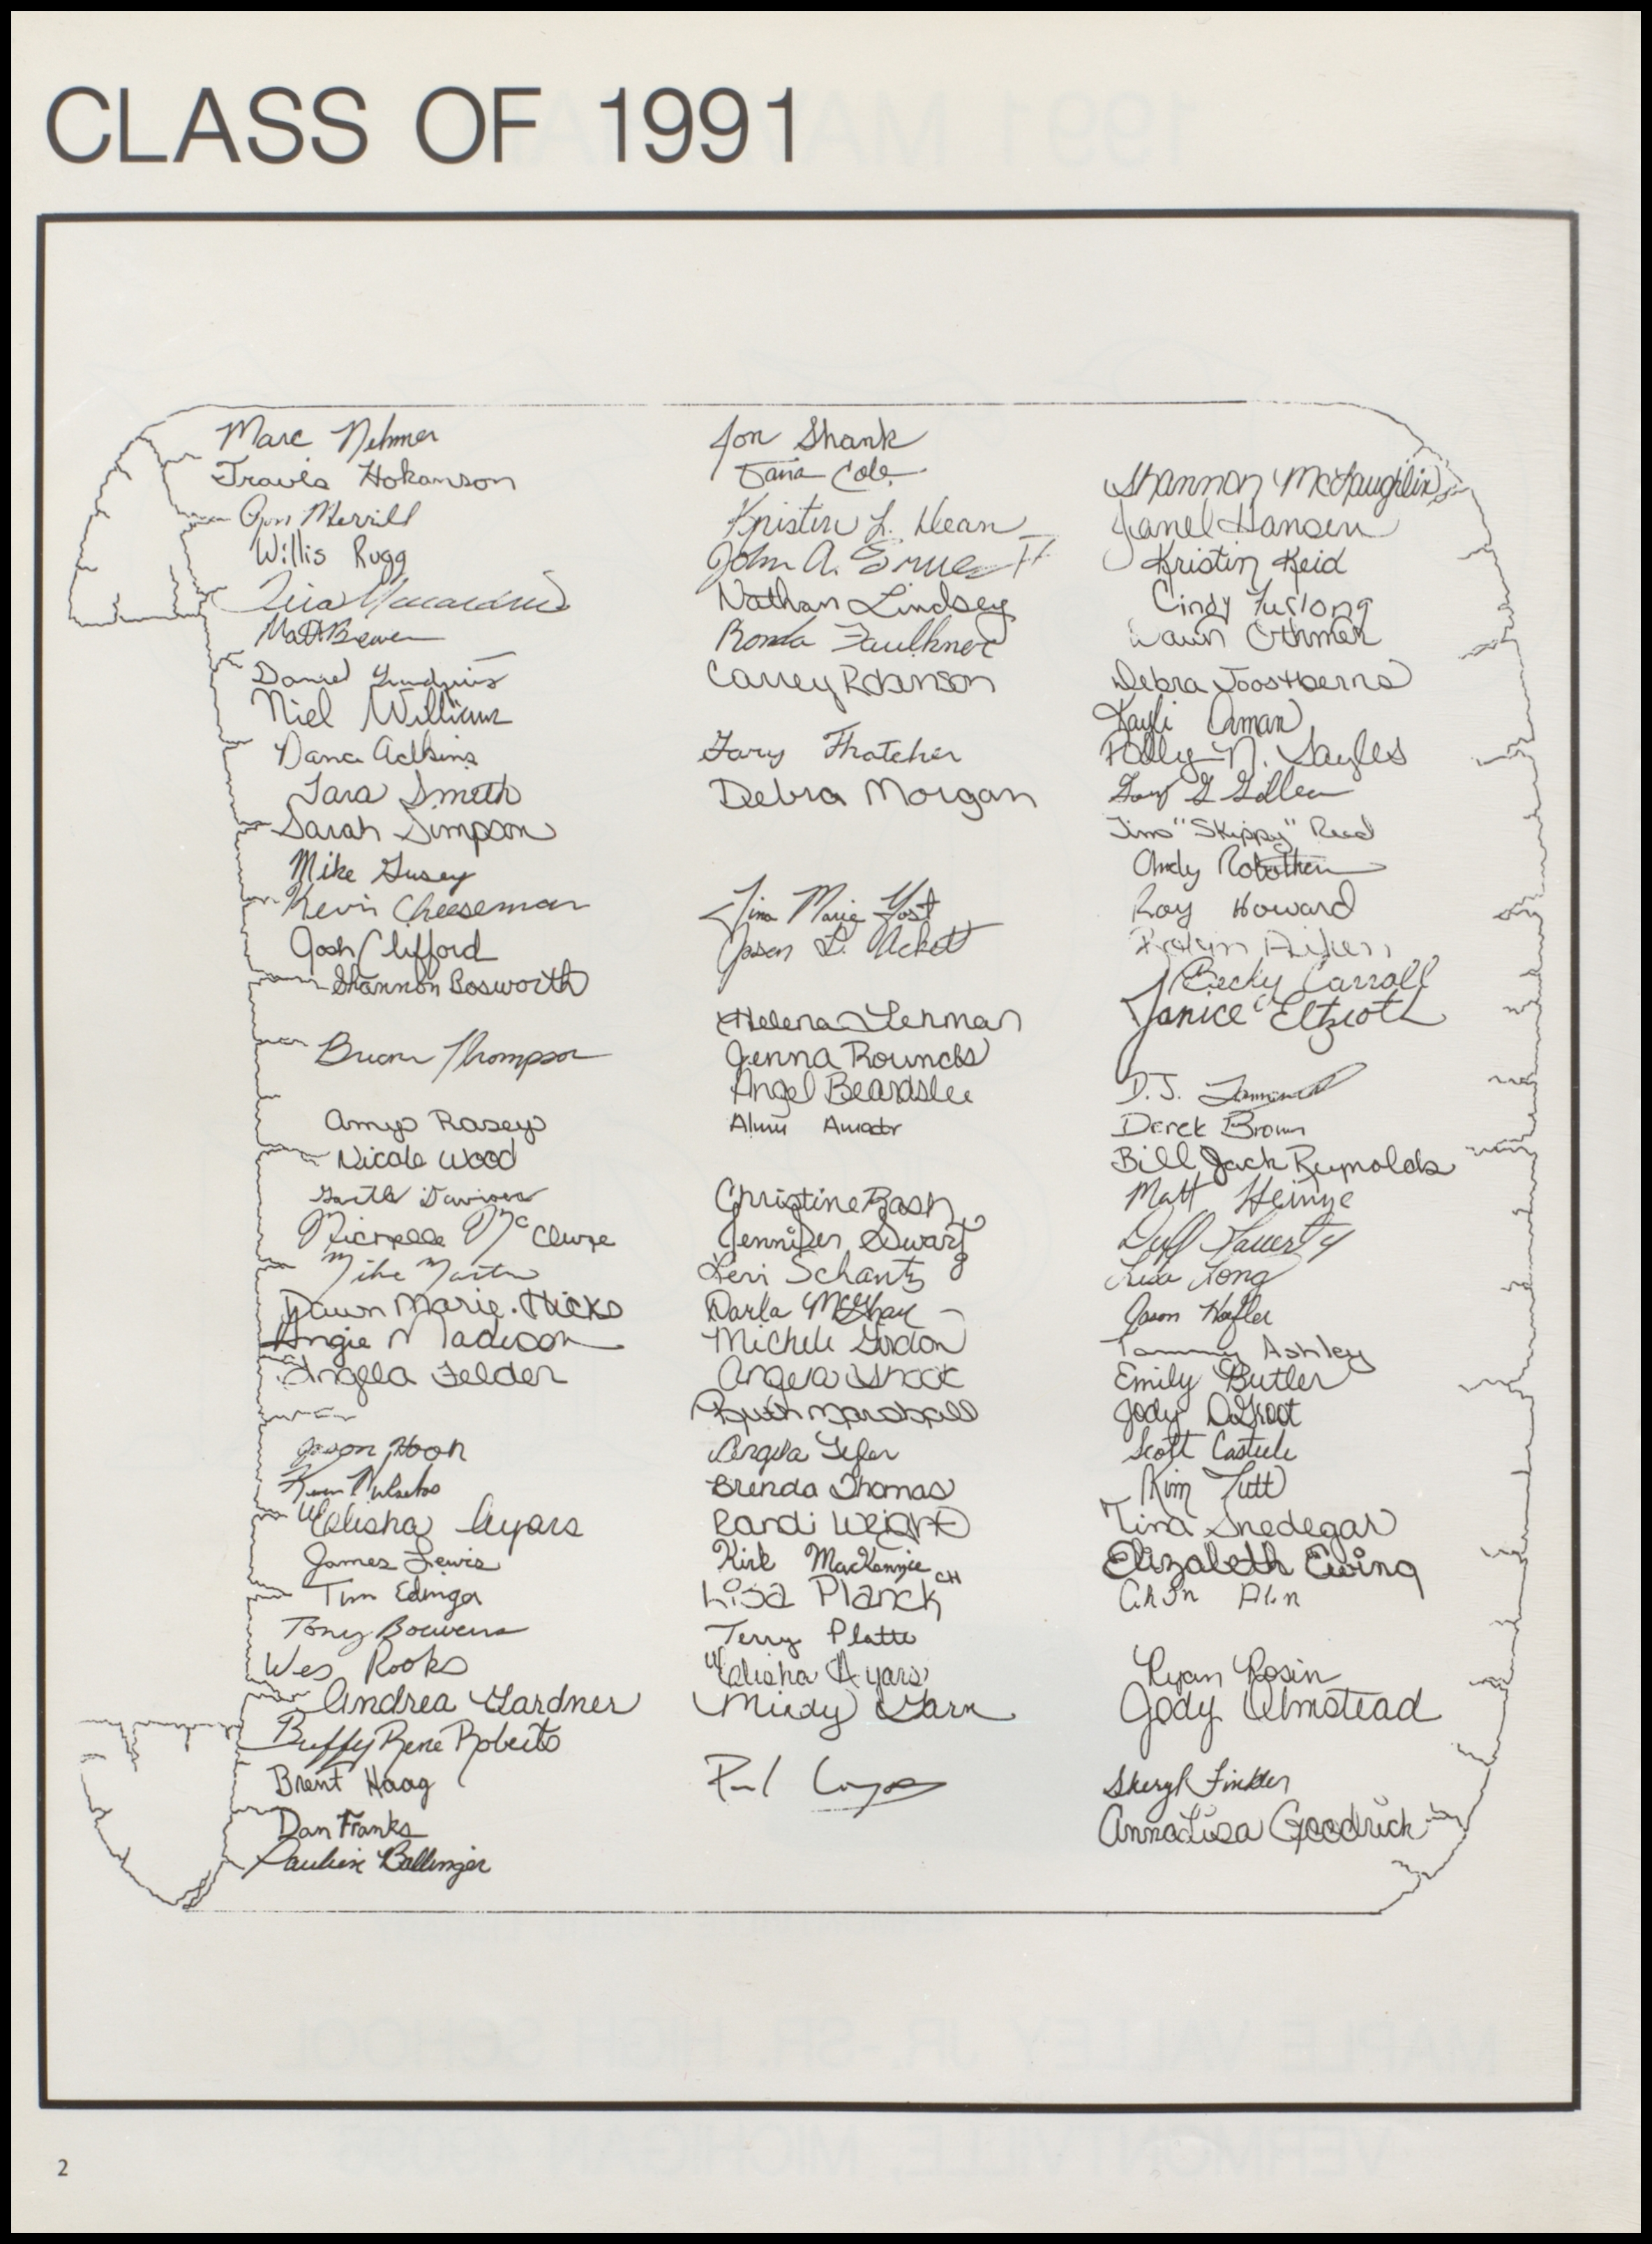 CLASS OF 1991
Marc Nehmer
Travis Hokanson
Jon Merrill
Willis Rugg
Matt Brewer
Daniel
Niel Williams
Dana Adkins
Tara Smith
Sarah Simpson
Mike Gusey
Kevin Cheeseman
Josh Clifford
Shannon Bosworth
Brian Thompson
Amyo Rasey
Nicole Wood
Garth
Michelle McClure
Mike Martin
Dawn Marie Hicks
Angie Madison
Angela Felder
Jason Hook
Melisha Ayars
James Lewis
Tim Edinger
Tony Bouwens
Wes Rooks
Andrea Gardner
Buffy Rene Roberts
Brent Haag
Dan Franks
Pauline Ballinger
Jon Shank
Tana Cole
Kristin L. Dean
John A.
Nathan Lindsey
Ronda Faulkner
Carrey Robinson
Gary Thatcher
Debra Morgan
Tina Marie Yost
Jason L. Ackett
Helena Lehman
Jenna Rounds
Angel Beardslee
Christine Rash
Jennifer Swartz
Levi Schantz
Darla McGhan
Michele Gordon
Angela Shook
Ruth Marshall
Angela
Brenda Thomas
Randi Weight
Kirk MacKennzie
Lisa Planck
Terry Platte
Melisha Ayars
Mindy Garn
Shannon McLaughlin
Janel Hansen
Kristin Reid
Cindy Furlong
Dawn Othmer
Debra Joostberns
Kayli Orman
Polly N. Sayles
Jim "Skippy" Reed
Andy Robothem
Roy Howard
Aiken
Becky Carroll
Janice Eltzroth
D.J.
Derek Brown
Bill Jack Reynolds
Matt Heinze
Duff Laverty
Lisa Long
Jason Hoefler
Tammy Ashley
Emily Butler
Jody DeGroot
Scott Casteele
Kim Tutt
Tina Snedegar
Elizabeth Ewing
Ryan Rosin
Jody Olmstead
Sheryl Finkler
AnnaLisa Goodrich
2